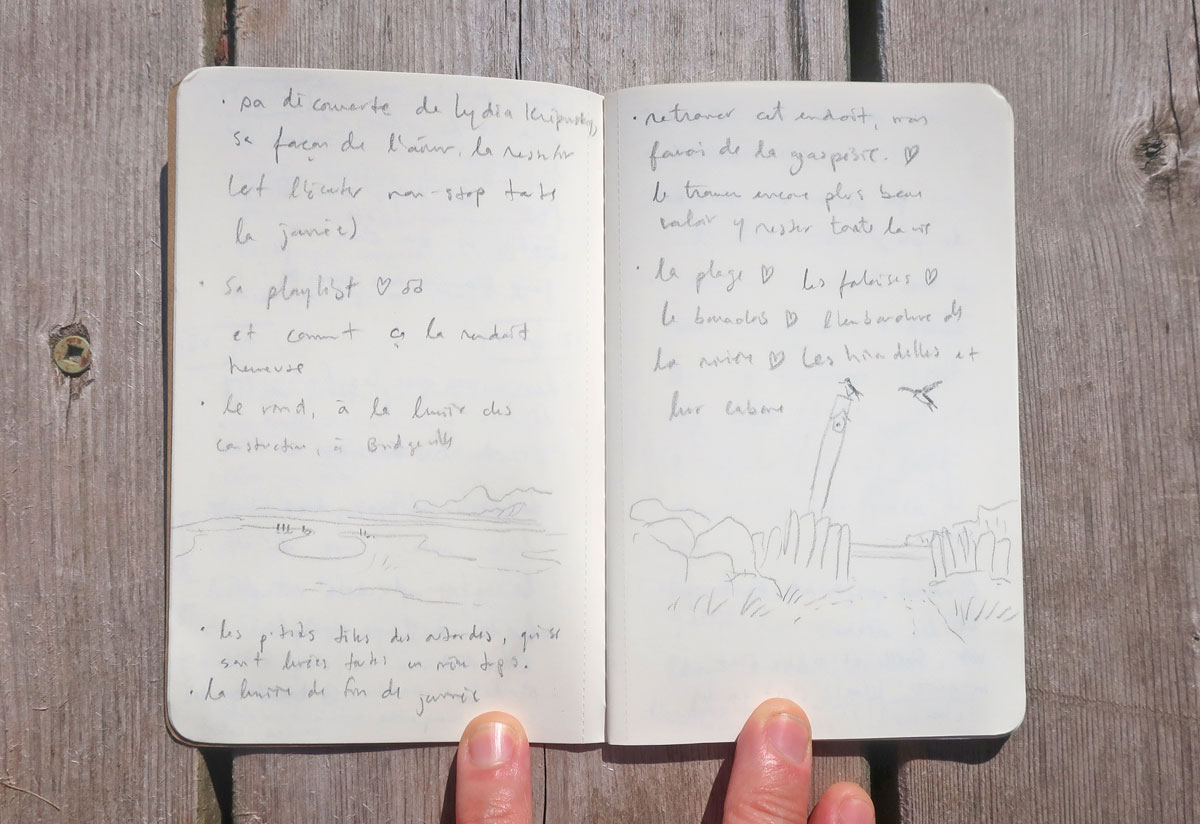 • sa découverte de Lydia
sa façon de l'aimer, la ressentir
(et l'écouter non-stop toute
la journée)
• sa playlist ♡ ♫
et comment ça la rendait
heureuse
• le rond, à la lumière des
construction, à Bridgeville
• les p'tites têtes des outardes, qui se
sont levées toutes en même temps.
• la lumière de fin de journée
• retrouver cet endroit, mon
favori de la gaspésie. ♡
le trouver encore plus beau
vouloir y rester toute la vie
• la plage ♡ les falaises ♡
le ♡ l'embouchure de
la rivière ♡ les hirondelles et
leur cabane